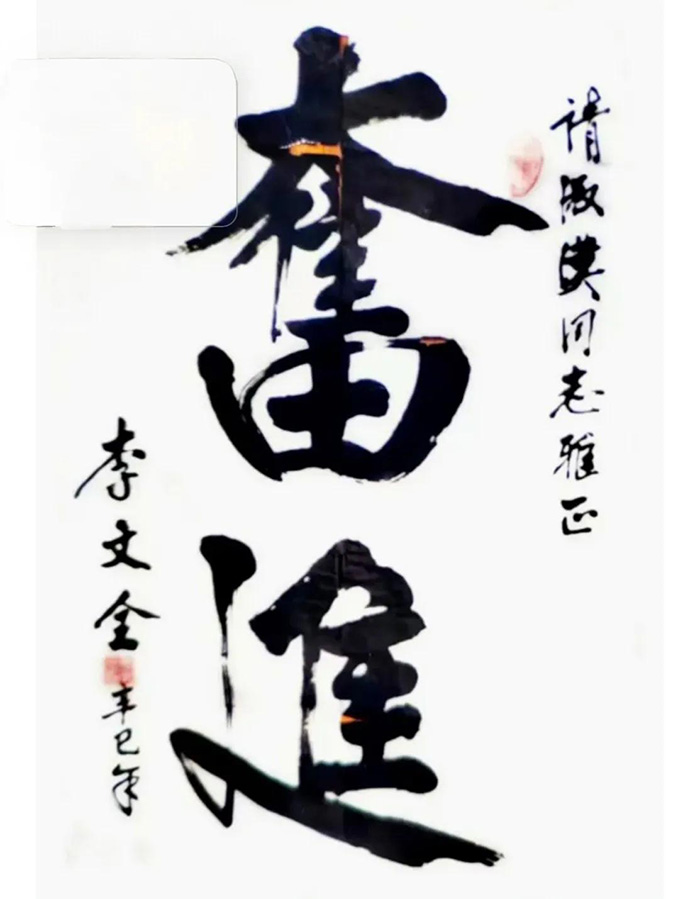 请淑漢同志雅正
奮進
李文全
辛巳年